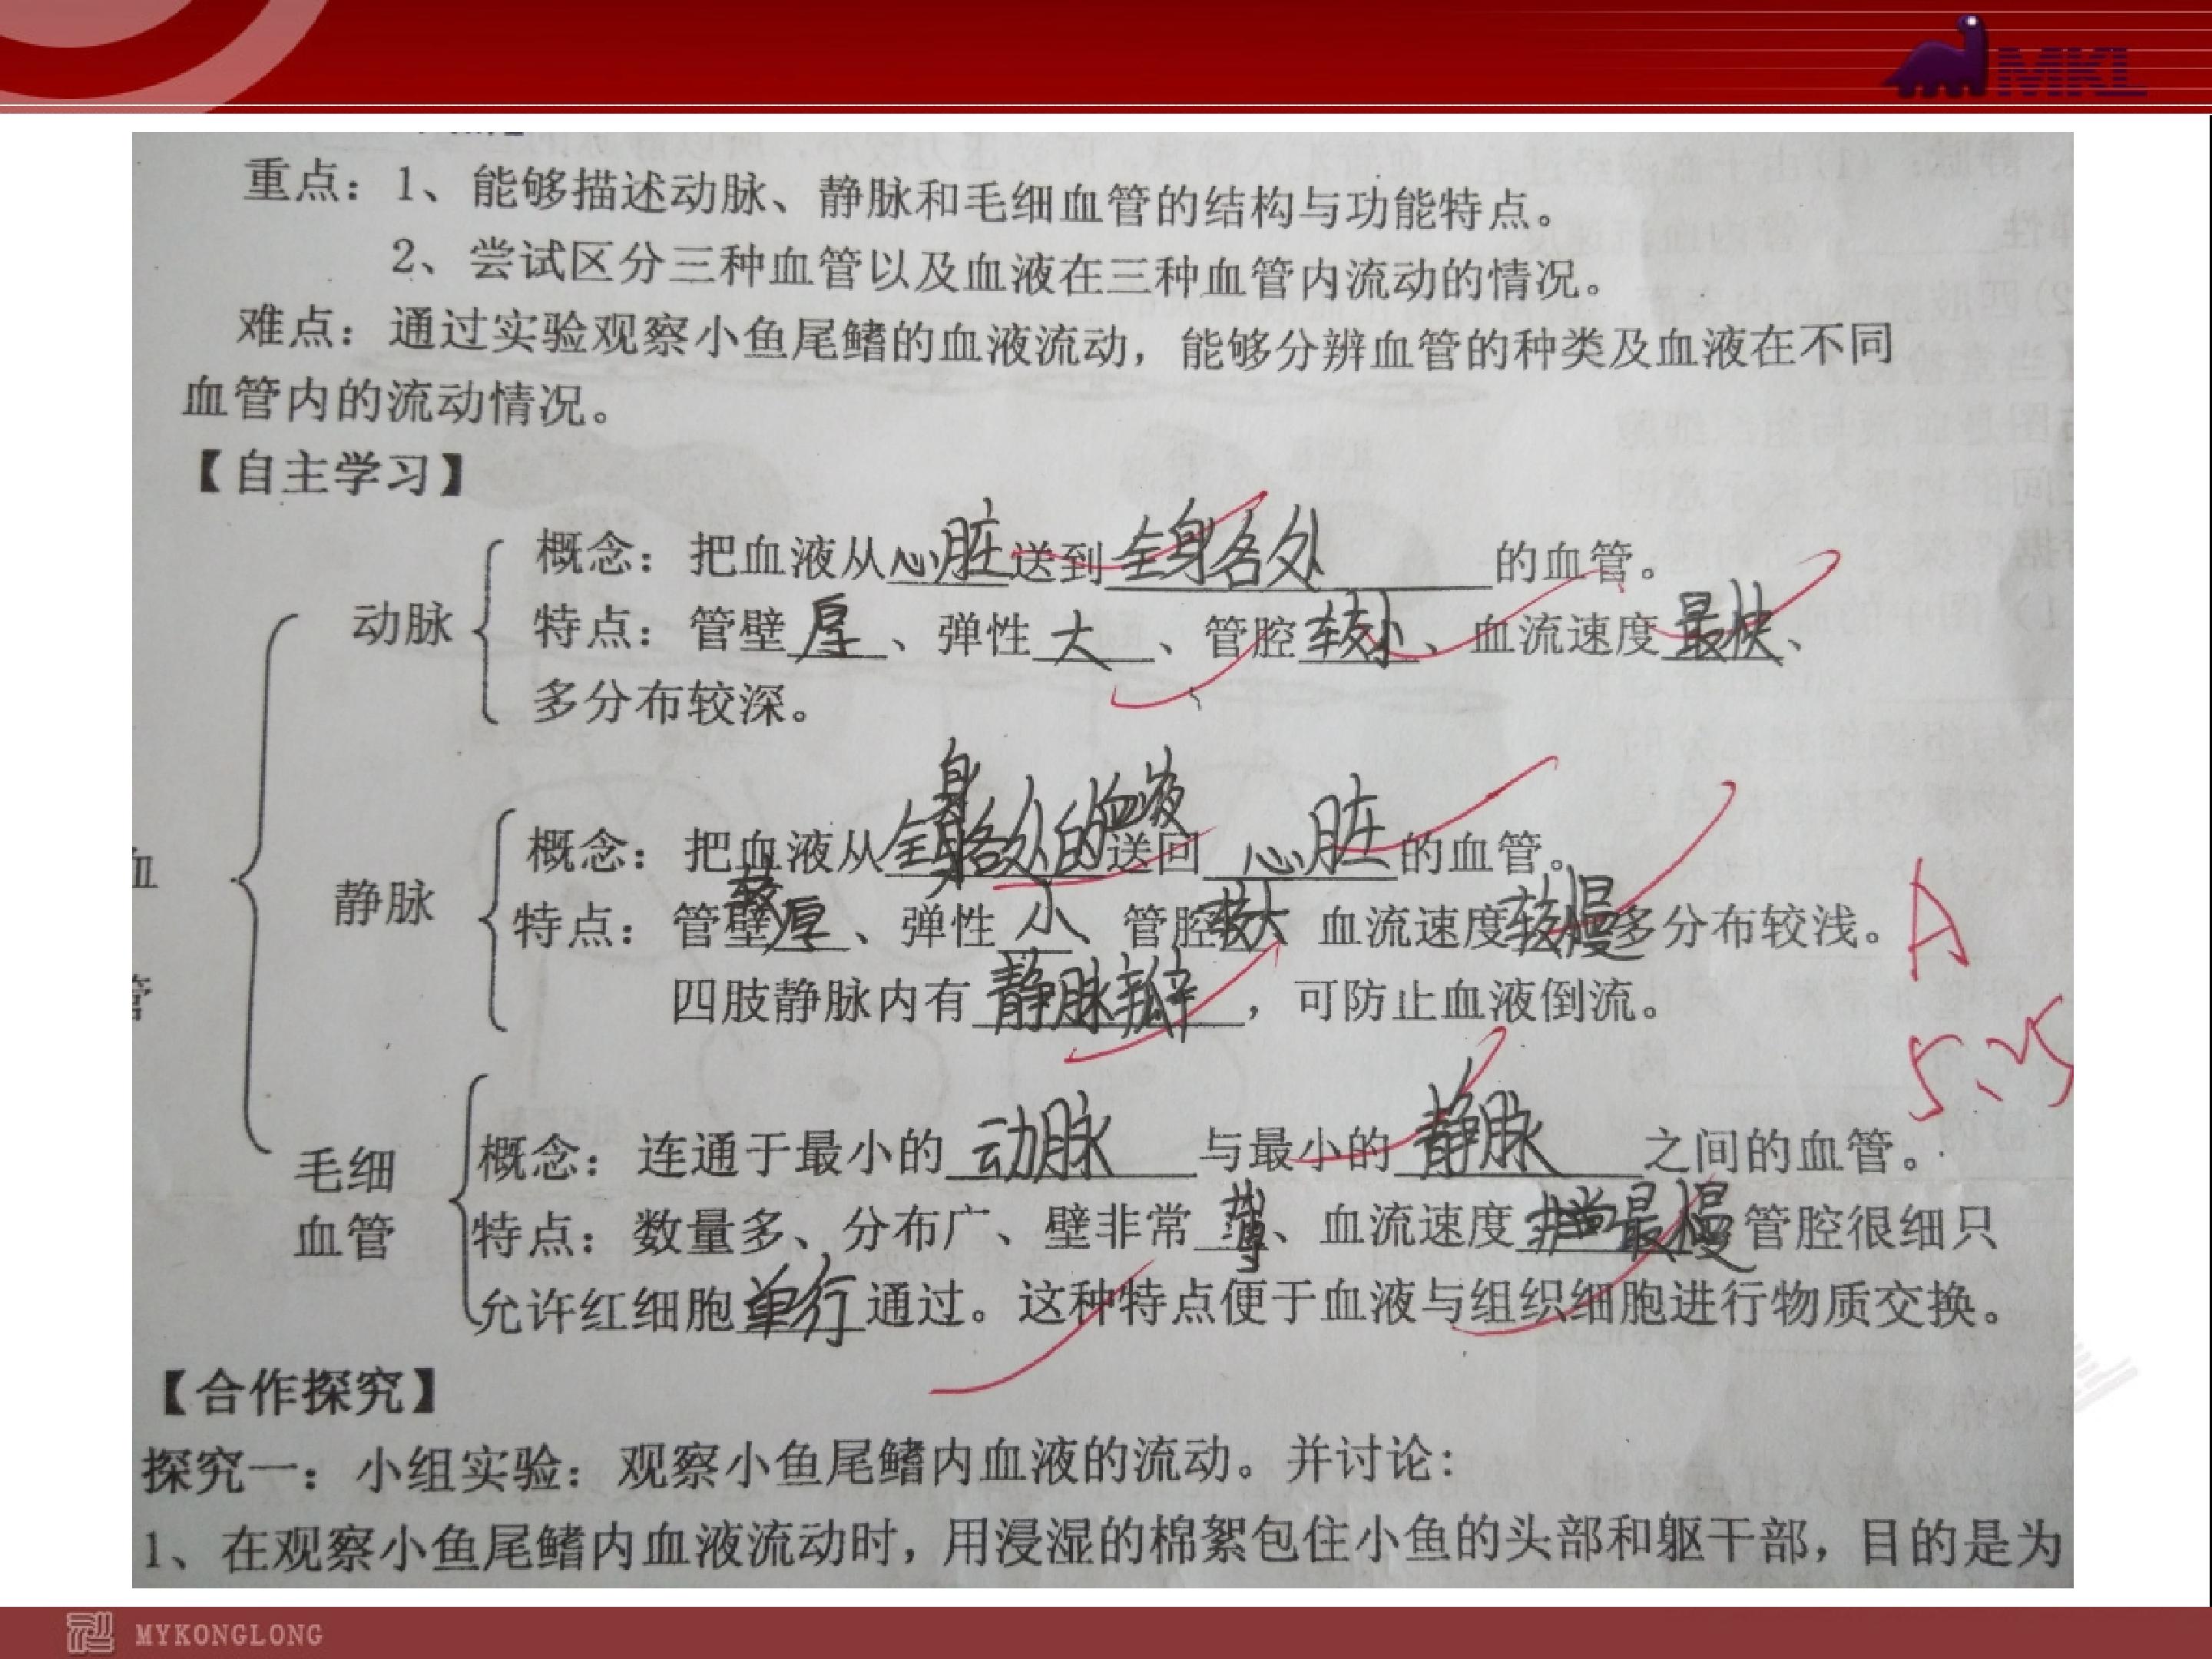 MKL
重点：1、能够描述动脉、静脉和毛细血管的结构与功能特点。
2、尝试区分三种血管以及血液在三种血管内流动的情况。
难点：通过实验观察小鱼尾鳍的血液流动，能够分辨血管的种类及血液在不同
血管内的流动情况。
【自主学习】
概念：把血液从心脏送到全身各处的血管。
动脉
特点：管壁厚、弹性大、管腔较小、血流速度最快、
多分布较深。
概念：把血液从全身各处的血液送回心脏的血管。
血管
静脉
特点：管壁较厚、弹性小、管腔较大 血流速度较慢多分布较浅。
四肢静脉内有静脉瓣，可防止血液倒流。
A
5、25
毛细
血管
概念：连通于最小的动脉与最小的静脉之间的血管。
特点：数量多、分布广、壁非常薄、血流速度最慢 管腔很细只
允许红细胞单行通过。这种特点便于血液与组织细胞进行物质交换。
【合作探究】
探究一：小组实验：观察小鱼尾鳍内血液的流动。并讨论：
1、在观察小鱼尾鳍内血液流动时，用浸湿的棉絮包住小鱼的头部和躯干部，目的是为
MYKONGLONG